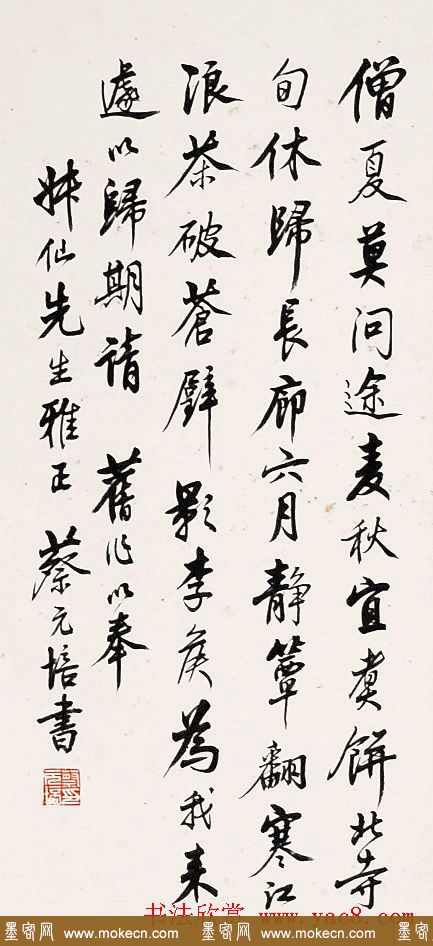 僧夏莫问途麦秋宜煑餅北寺
旬休歸長廊六月静簟翻寒江
浪茶破蒼壁影李侯為我来
遽以歸期請 舊作以奉
仙先生雅正 蔡元培書
书法欣赏 www.yac8.com
墨客网 www.mokecn.com 墨客网 www.mokecn.com 墨客网 www.mokecn.com